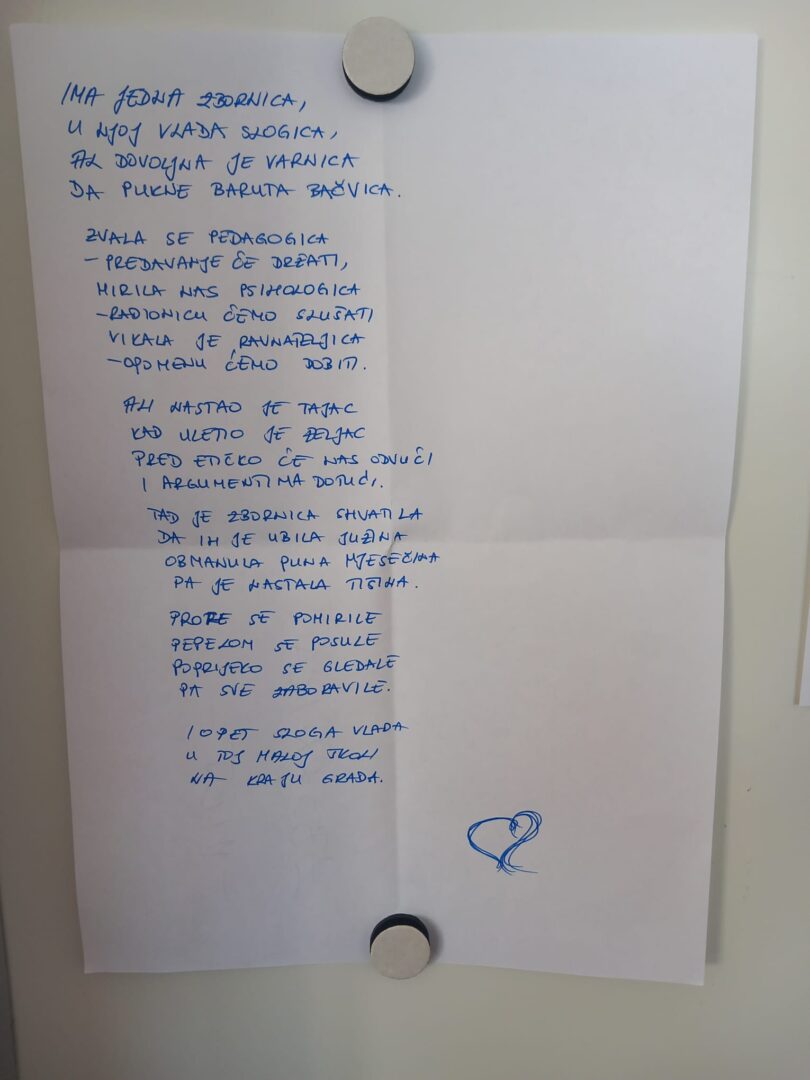 IMA JEDNA ZBORNICA,
U NJOJ VLADA SLOGICA,
AL DOVOLJNA JE VARNICA
DA PUKNE BARUTA BAČVICA.
ZVALA SE PEDAGOGICA
– PREDAVANJE ĆE DRŽATI,
MIRILA NAS PSIHOLOGICA
– RADIONICU ĆEMO SLUŠATI
VIKALA JE RAVNATELJICA
– OPOMENU ĆEMO DOBITI.
ALI NASTAO JE TAJAC
KAD ULETIO JE ŽELJAC
PRED ETIČKO ĆE NAS ODVUĆI
I ARGUMENTIMA DOTUĆI.
TAD JE ZBORNICA SHVATILA
DA IH JE UBILA JUŽINA
OBMANULA PUNA MJESEČINA
PA JE NASTALA TIŠINA.
PROFE SE POMIRILE
PEPELOM SE POSULE
POPRIJEKO SE GLEDALE
PA SVE ZABORAVILE.
I OPET SLOGA VLADA
U TOJ MALOJ ŠKOLI
NA KRAJU GRADA.